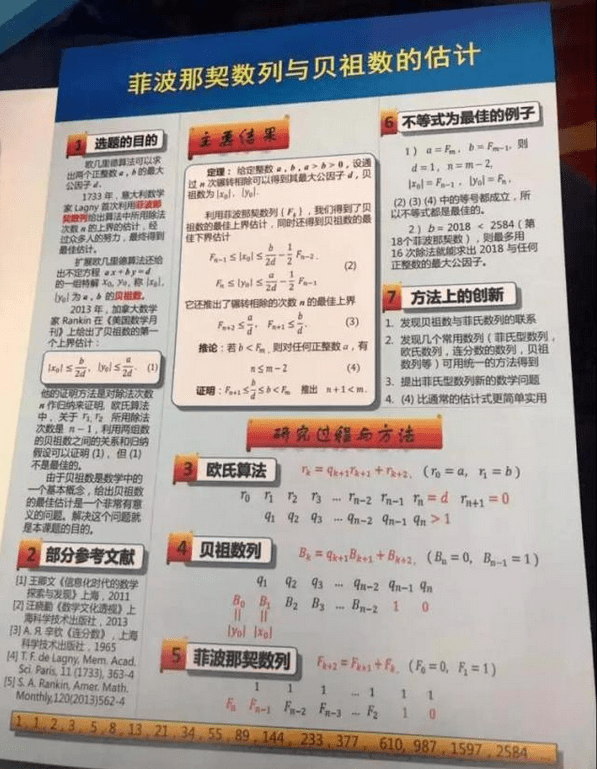 菲波那契数列与贝祖数的估计
1 选题的目的
欧几里德算法可以求
出两个正整数 a, b 的最大
公因子 d.
1733 年，意大利数学
家 Lagny 首次利用菲波那
契数列给出算法中所用除法
次数 n 的上界的估计，经
过众多人的努力，最终得到
最佳估计。
扩展欧几里德算法还给
出不定方程 ax + by = d
的一组特解 x₀, y₀, 称 |x₀|,
|y₀| 为 a, b 的贝祖数。
2013 年，加拿大数学
家 Rankin 在《美国数学月
刊》上给出了贝祖数的第一
个上界估计：
|x₀| ≤ b/2d, |y₀| ≤ a/2d. (1)
他的证明方法是对除法次数
n 作归纳来证明, 欧氏算法
中，关于 r₁, r₂ 所用除法
次数是 n − 1, 利用两组数
的贝祖数之间的关系和归纳
假设可以证明 (1)、但 (1)
不是最佳的。
由于贝祖数是数学中的
一个基本概念，给出贝祖数
的最佳估计是一个非常有意
义的问题。解决这个问题就
是本课题的目的。
2 部分参考文献
[1] 王卿文《信息化时代的数学
探索与发现》上海，2011
[2] 汪晓勤《数学文化透视》上
海科学技术出版社，2013
[3] А. Я. 辛钦《连分数》，上海
科学技术出版社，1965
[4] T. F. de Lagny, Mem. Acad.
Sci. Paris, 11 (1733), 363-4
[5] S. A. Rankin, Amer. Math.
Monthly,120(2013)562-4
主要结果
定理：给定整数 a, b, a > b > 0, 设通
过 n 次辗转相除可以得到其最大公因子 d, 贝
祖数为 |x₀|, |y₀|.
利用菲波那契数列 {Fₖ}, 我们得到了贝
祖数的最佳上界估计，同时还得到贝祖数的最
佳下界估计
Fₙ₋₁ ≤ |x₀| ≤ b/2d − 1/2 Fₙ₋₂.
(2)
Fₙ ≤ |y₀| ≤ a/2d − 1/2 Fₙ₋₁
它还推出了辗转相除的次数 n 的最佳上界
Fₙ₊₂ ≤ a/d, Fₙ₊₁ ≤ b/d. (3)
推论：若 b < Fₘ, 则对任何正整数 a，有
n ≤ m − 2 (4)
证明：Fₙ₊₁ ≤ b/d ≤ b < Fₘ 推出 n + 1 < m.
6 不等式为最佳的例子
1）a = Fₘ, b = Fₘ₋₁, 则
d = 1, n = m − 2,
|x₀| = Fₙ₋₁, |y₀| = Fₙ,
(2) (3) (4) 中的等号都成立，所
以不等式都是最佳的。
2）b = 2018 < 2584（第
18个菲波那契数），则最多用
16 次除法就能求出 2018 与任何
正整数的最大公因子。
7 方法上的创新
1. 发现贝祖数与菲氏数列的联系
2. 发现几个常用数列（菲氏型数列，
欧氏数列，连分数的数列，贝祖
数列等）可用统一的方法得到
3. 提出菲氏型数列新的数学问题
4. (4) 比通常的估计式更简单实用
研究过程与方法
3 欧氏算法 rₖ = qₖ₊₁rₖ₊₁ + rₖ₊₂, (r₀ = a, r₁ = b)
r₀ r₁ r₂ r₃ ... rₙ₋₂ rₙ₋₁ rₙ = d rₙ₊₁ = 0
q₁ q₂ q₃ ... qₙ₋₂ qₙ₋₁ qₙ > 1
4 贝祖数列 Bₖ = qₖ₊₁Bₖ₊₁ + Bₖ₊₂, (Bₙ = 0, Bₙ₋₁ = 1)
q₁ q₂ q₃ ... qₙ₋₂ qₙ₋₁ qₙ
B₀ B₁ B₂ B₃ ... Bₙ₋₂ 1 0
|| ||
|y₀| |x₀|
5 菲波那契数列 Fₖ₊₂ = Fₖ₊₁ + Fₖ, (F₀ = 0, F₁ = 1)
1 1 1 ... 1 1 1
Fₙ Fₙ₋₁ Fₙ₋₂ Fₙ₋₃ ... F₂ 1 0
1, 1, 2, 3, 5, 8, 13, 21, 34, 55, 89, 144, 233, 377, 610, 987, 1597, 2584 ...